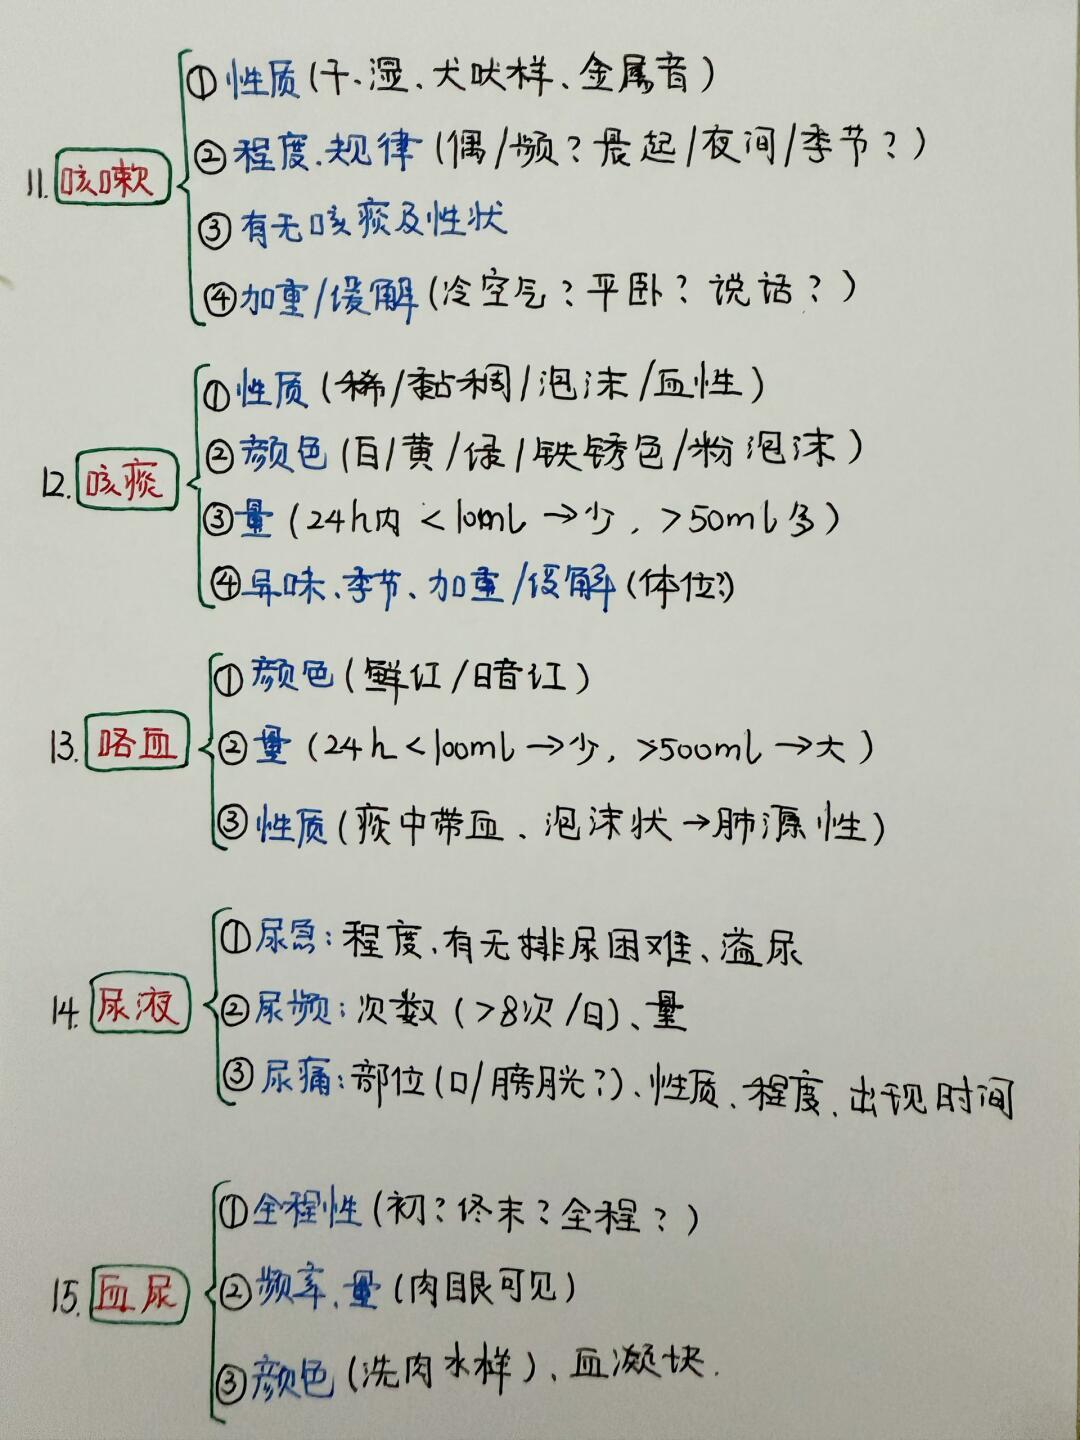 ①性质(干、湿、犬吠样、金属音)
②程度、规律(偶/频?晨起/夜间/季节?)
11.咳嗽
③有无咳痰及性状
④加重/缓解(冷空气?平卧?说话?)
①性质(稀/黏稠/泡沫/血性)
②颜色(白/黄/绿/铁锈色/粉泡沫)
12.咳痰
③量(24h内<10ml→少,>50ml多)
④异味、季节、加重/缓解(体位?)
①颜色(鲜红/暗红)
13.咯血 ②量(24h<100ml→少,>500ml→大)
③性质(痰中带血、泡沫状→肺源性)
①尿急:程度、有无排尿困难、溢尿
14.尿液 ②尿频:次数(>8次/日)、量
③尿痛:部位(口/膀胱?)、性质、程度、出现时间
①全程性(初?终末?全程?)
15.血尿 ②频率、量(肉眼可见)
③颜色(洗肉水样)、血凝块.